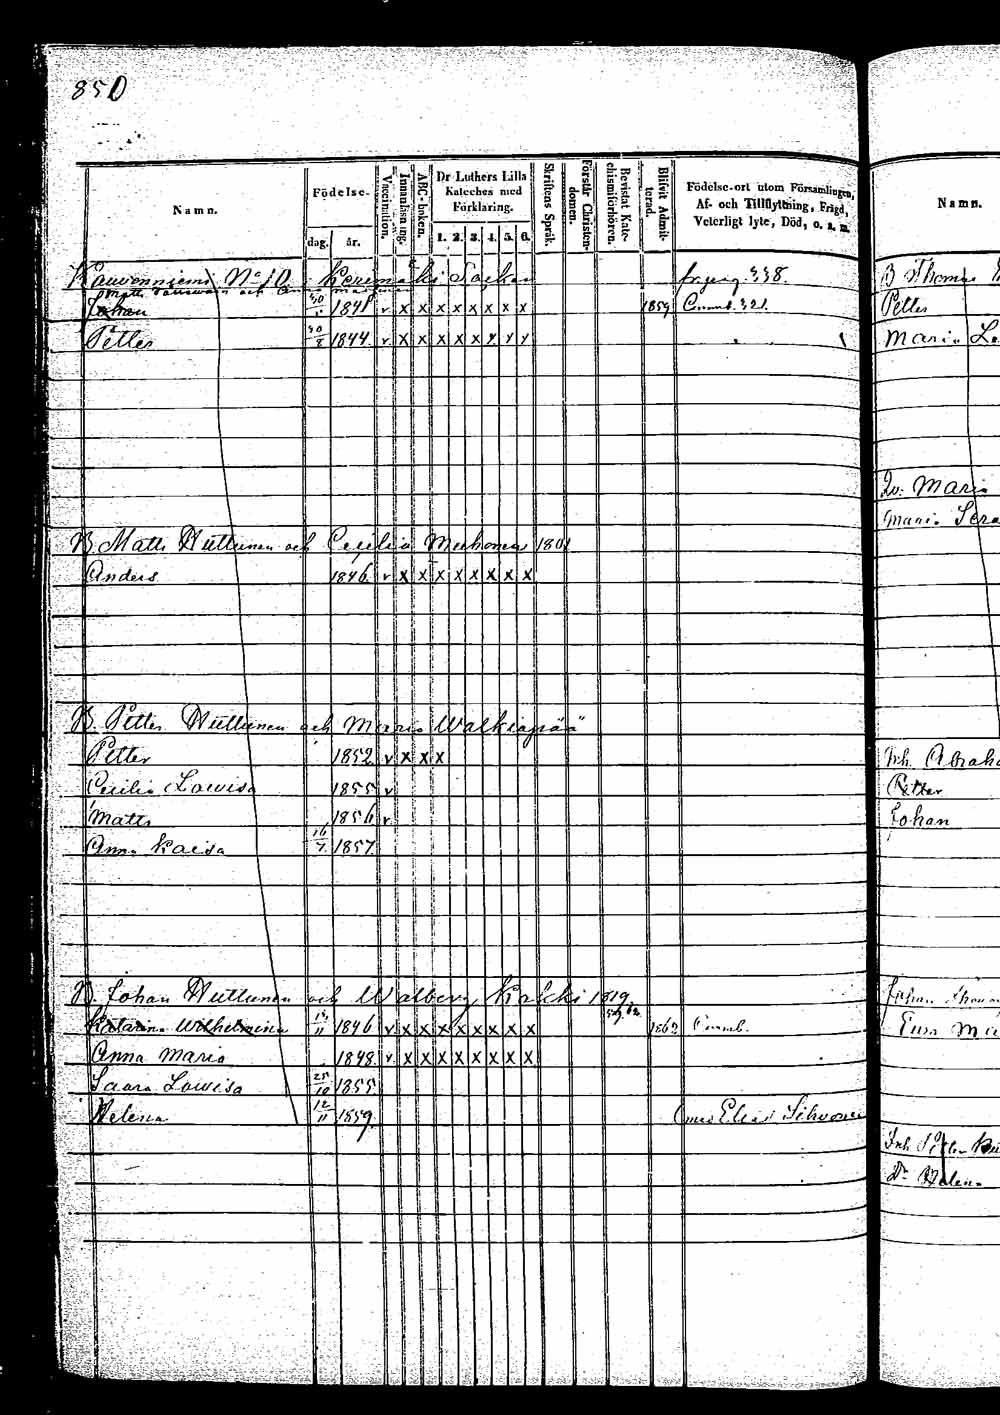 850
Namn.
Födelse-
dag.
år.
Vaccination.
Innanläsning.
ABC-boken.
Dr Luthers Lilla
Kateches med
Förklaring.
1. 2. 3. 4. 5. 6.
Skriftens Språk.
Förstår Christen-
domen.
Bevistat Kate-
chismiförhören.
Blifvit Admit-
terad.
Födelse-ort utom Församlingen,
Af- och Tillflyttning, Frägd,
Veterligt lyte, Död, o. s. m.
Namn.
Kauvonniemi No 10 Kerimäki Socken 338.
Matts och Anna
Johan 30 1841 v x x x x x x x x 1859 321.
Petter 30/8 1844. v x x x x x y y y
B. Matts Huttunen och Cecilia 1801
Anders 1846 v x x x x x x x x
B. Petter Huttunen och Maria Walkiapää
Petter 1852 v x x x
Cecilia Lowisa 1855 v
Matts 1856 v
Anna Kaisa 16/7 1857.
B. Johan Huttunen och Walberg 1819
Katarina Wilhelmina 11 1846 v x x x x x x x x 1862
Anna Maria 1848. v x x x x x x x x
Saara Lowisa 25/10 1855.
Helena 12/11 1859. Elias Sihvonen
B Thomas
Petter
Maria
Maria
Maria
Inh. Abraha
Petter
Johan
Johan
Inh
Dr Helena